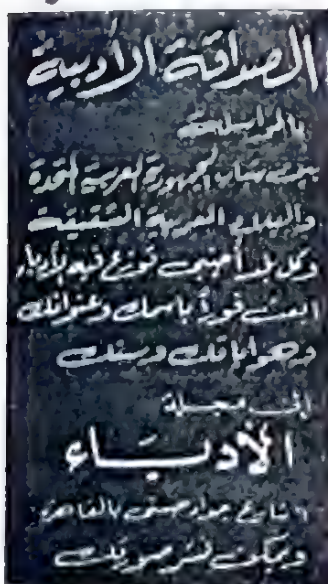 الصداقة الأدبية
بالمراسلة
بين شباب الجمهورية العربية المتحدة
والبلاد العربية الشقيقة
وكل بلد أجنبى توزع فيه الأدباء
ابعث فوراً باسمك وعنوانك
وهواياتك وسنك
إلى مجلة
الأدبــاء
شارع جواد حسنى بالقاهرة
ويمكن نشر صورتك